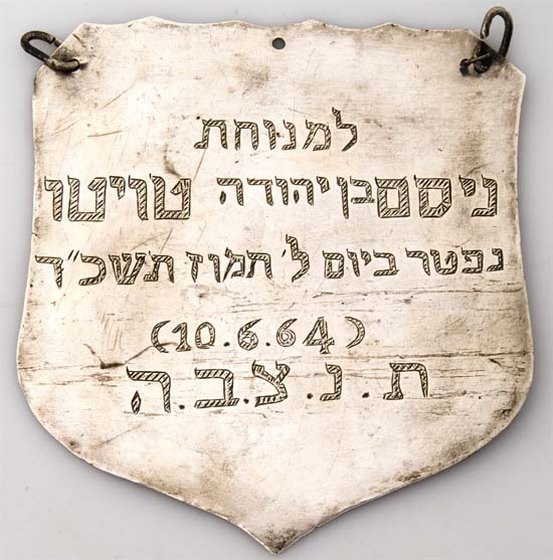 למנוחת
ניסם בן יהודה טויטו
נפטר ביום ל׳ תמוז תשכ״ד
(10.6.64)
ת.נ.צ.ב.ה